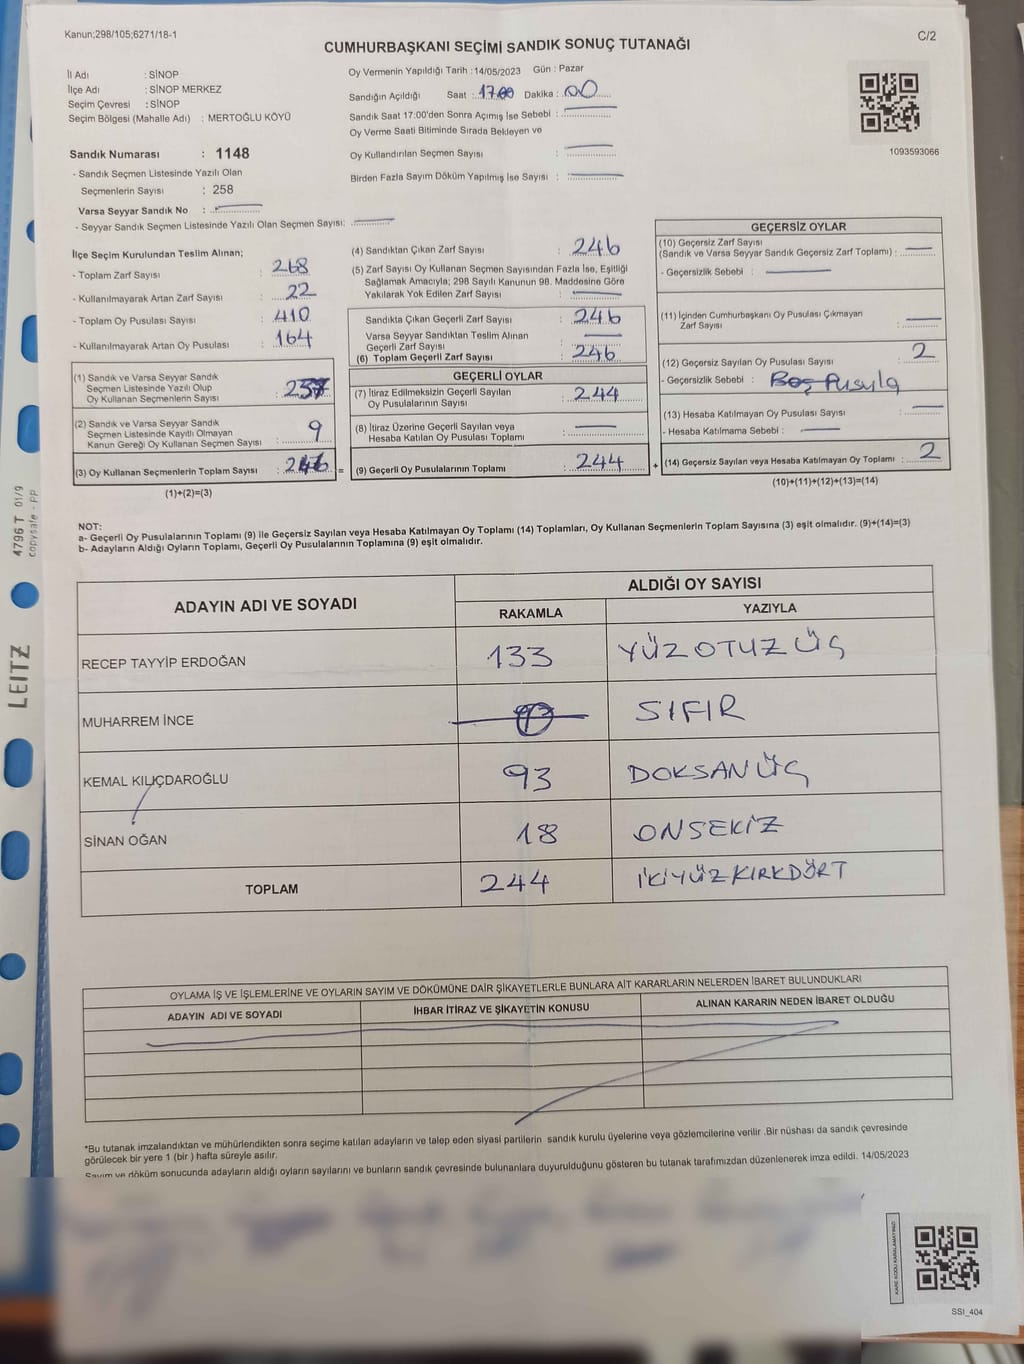 Kanun;298/105;6271/18-1
C/2
CUMHURBAŞKANI SEÇİMİ SANDIK SONUÇ TUTANAĞI
İl Adı : SİNOP
İlçe Adı : SİNOP MERKEZ
Seçim Çevresi : SİNOP
Seçim Bölgesi (Mahalle Adı) : MERTOĞLU KÖYÜ
Sandık Numarası : 1148
- Sandık Seçmen Listesinde Yazılı Olan
Seçmenlerin Sayısı : 258
Varsa Seyyar Sandık No :
- Seyyar Sandık Seçmen Listesinde Yazılı Olan Seçmen Sayısı:
Oy Vermenin Yapıldığı Tarih :14/05/2023 Gün : Pazar
Sandığın Açıldığı Saat : 17.00 Dakika : 00
Sandık Saat 17:00'den Sonra Açımış İse Sebebi :
Oy Verme Saati Bitiminde Sırada Bekleyen ve
Oy Kullandırılan Seçmen Sayısı :
Birden Fazla Sayım Döküm Yapılmış İse Sayısı :
1093593066
İlçe Seçim Kurulundan Teslim Alınan;
- Toplam Zarf Sayısı : 268
- Kullanılmayarak Artan Zarf Sayısı : 22
- Toplam Oy Pusulası Sayısı : 410
- Kullanılmayarak Artan Oy Pusulası : 164
(1) Sandık ve Varsa Seyyar Sandık
Seçmen Listesinde Yazılı Olup
Oy Kullanan Seçmenlerin Sayısı : 237
(2) Sandık ve Varsa Seyyar Sandık
Seçmen Listesinde Kayıtlı Olmayan
Kanun Gereği Oy Kullanan Seçmen Sayısı : 9
(3) Oy Kullanan Seçmenlerin Toplam Sayısı : 246 =
(1)+(2)=(3)
(4) Sandıktan Çıkan Zarf Sayısı : 246
(5) Zarf Sayısı Oy Kullanan Seçmen Sayısından Fazla İse, Eşitliği
Sağlamak Amacıyla; 298 Sayılı Kanunun 98. Maddesine Göre
Yakılarak Yok Edilen Zarf Sayısı :
Sandıkta Çıkan Geçerli Zarf Sayısı : 246
Varsa Seyyar Sandıktan Teslim Alınan
Geçerli Zarf Sayısı :
(6) Toplam Geçerli Zarf Sayısı : 246
GEÇERLİ OYLAR
(7) İtiraz Edilmeksizin Geçerli Sayılan
Oy Pusulalarının Sayısı : 244
(8) İtiraz Üzerine Geçerli Sayılan veya
Hesaba Katılan Oy Pusulası Toplamı :
(9) Geçerli Oy Pusulalarının Toplamı : 244 +
GEÇERSİZ OYLAR
(10) Geçersiz Zarf Sayısı
(Sandık ve Varsa Seyyar Sandık Geçersiz Zarf Toplamı) :
- Geçersizlik Sebebi :
(11) İçinden Cumhurbaşkanı Oy Pusulası Çıkmayan
Zarf Sayısı :
(12) Geçersiz Sayılan Oy Pusulası Sayısı : 2
- Geçersizlik Sebebi : Boş Pusula
(13) Hesaba Katılmayan Oy Pusulası Sayısı :
- Hesaba Katılmama Sebebi :
(14) Geçersiz Sayılan veya Hesaba Katılmayan Oy Toplamı : 2
(10)+(11)+(12)+(13)=(14)
NOT:
a- Geçerli Oy Pusulalarının Toplamı (9) ile Geçersiz Sayılan veya Hesaba Katılmayan Oy Toplamı (14) Toplamları, Oy Kullanan Seçmenlerin Toplam Sayısına (3) eşit olmalıdır. (9)+(14)=(3)
b- Adayların Aldığı Oyların Toplamı, Geçerli Oy Pusulalarının Toplamına (9) eşit olmalıdır.
ADAYIN ADI VE SOYADI
ALDIĞI OY SAYISI
RAKAMLA YAZIYLA
RECEP TAYYİP ERDOĞAN 133 YÜZOTUZÜÇ
MUHARREM İNCE SIFIR
KEMAL KILIÇDAROĞLU 93 DOKSANÜÇ
SİNAN OĞAN 18 ONSEKİZ
TOPLAM 244 İKİYÜZKIRKDÖRT
OYLAMA İŞ VE İŞLEMLERİNE VE OYLARIN SAYIM VE DÖKÜMÜNE DAİR ŞİKAYETLERLE BUNLARA AİT KARARLARIN NELERDEN İBARET BULUNDUKLARI
ADAYIN ADI VE SOYADI İHBAR İTİRAZ VE ŞİKAYETİN KONUSU ALINAN KARARIN NEDEN İBARET OLDUĞU
*Bu tutanak imzalandıktan ve mühürlendikten sonra seçime katılan adayların ve talep eden siyasi partilerin sandık kurulu üyelerine veya gözlemcilerine verilir .Bir nüshası da sandık çevresinde
görülecek bir yere 1 (bir ) hafta süreyle asılır.
Sayım ve döküm sonucunda adayların aldığı oyların sayılarını ve bunların sandık çevresinde bulunanlara duyurulduğunu gösteren bu tutanak tarafımızdan düzenlenerek imza edildi. 14/05/2023
KARE KODU KARALAMAYINIZ!
SSI_404
4796T 01/9
copysafe - pp
LEITZ